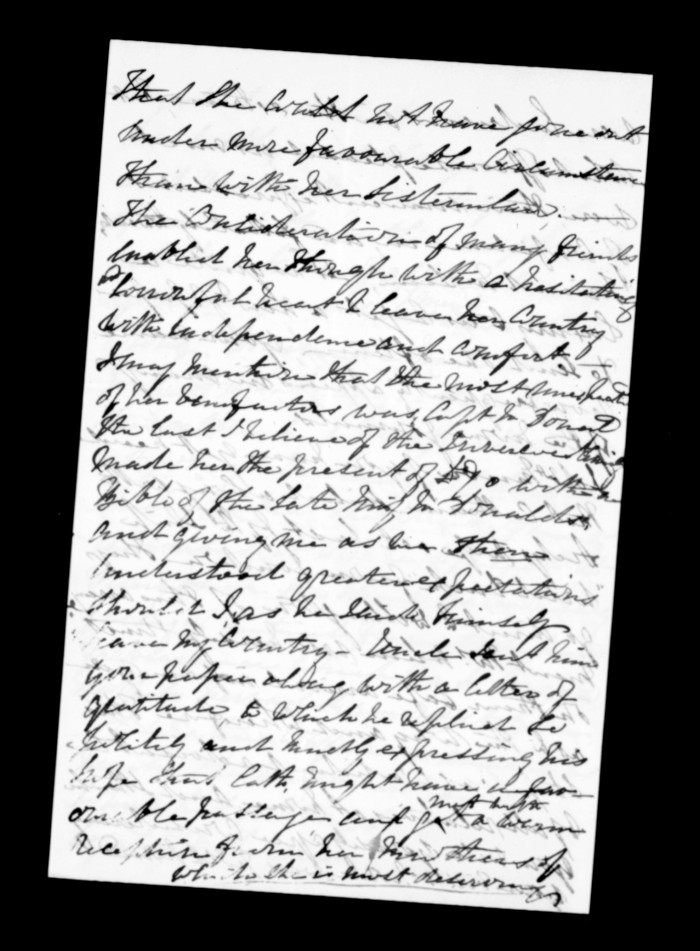 that she could not have gone out
under more favourable circumstance
than with her Sister in law. —
The Consideration of many friends
enabled her though with a hesitating
& Sorrowful heart to leave her Country
with independence and comfort —
I may mention that the most
of her benefactors was Capt Mc Donald
the last I believe of the
made her the present of £70 with a
Bible of the late Mc Donalds
and giving me as he then
understood greater expectations
Should I as he said himself
leave my Country – Uncle sent him
your paper along with a letter of
gratitude to which he replied so
politely and kindly expressing his
hope that Cath. might have a fav-
ourable passage and meet with a warm
reception from her Brothers of
which she is most deserving